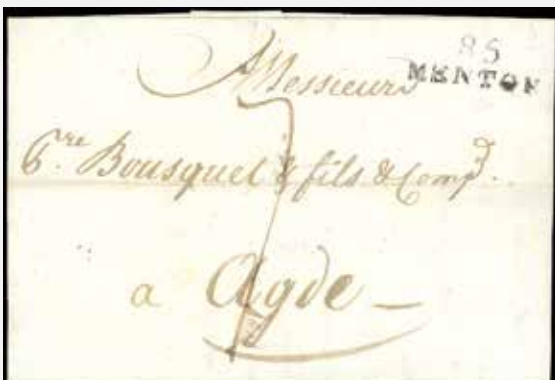 85
MENTON
Messieurs
Bousquet & fils & Comp.
a Agde
7